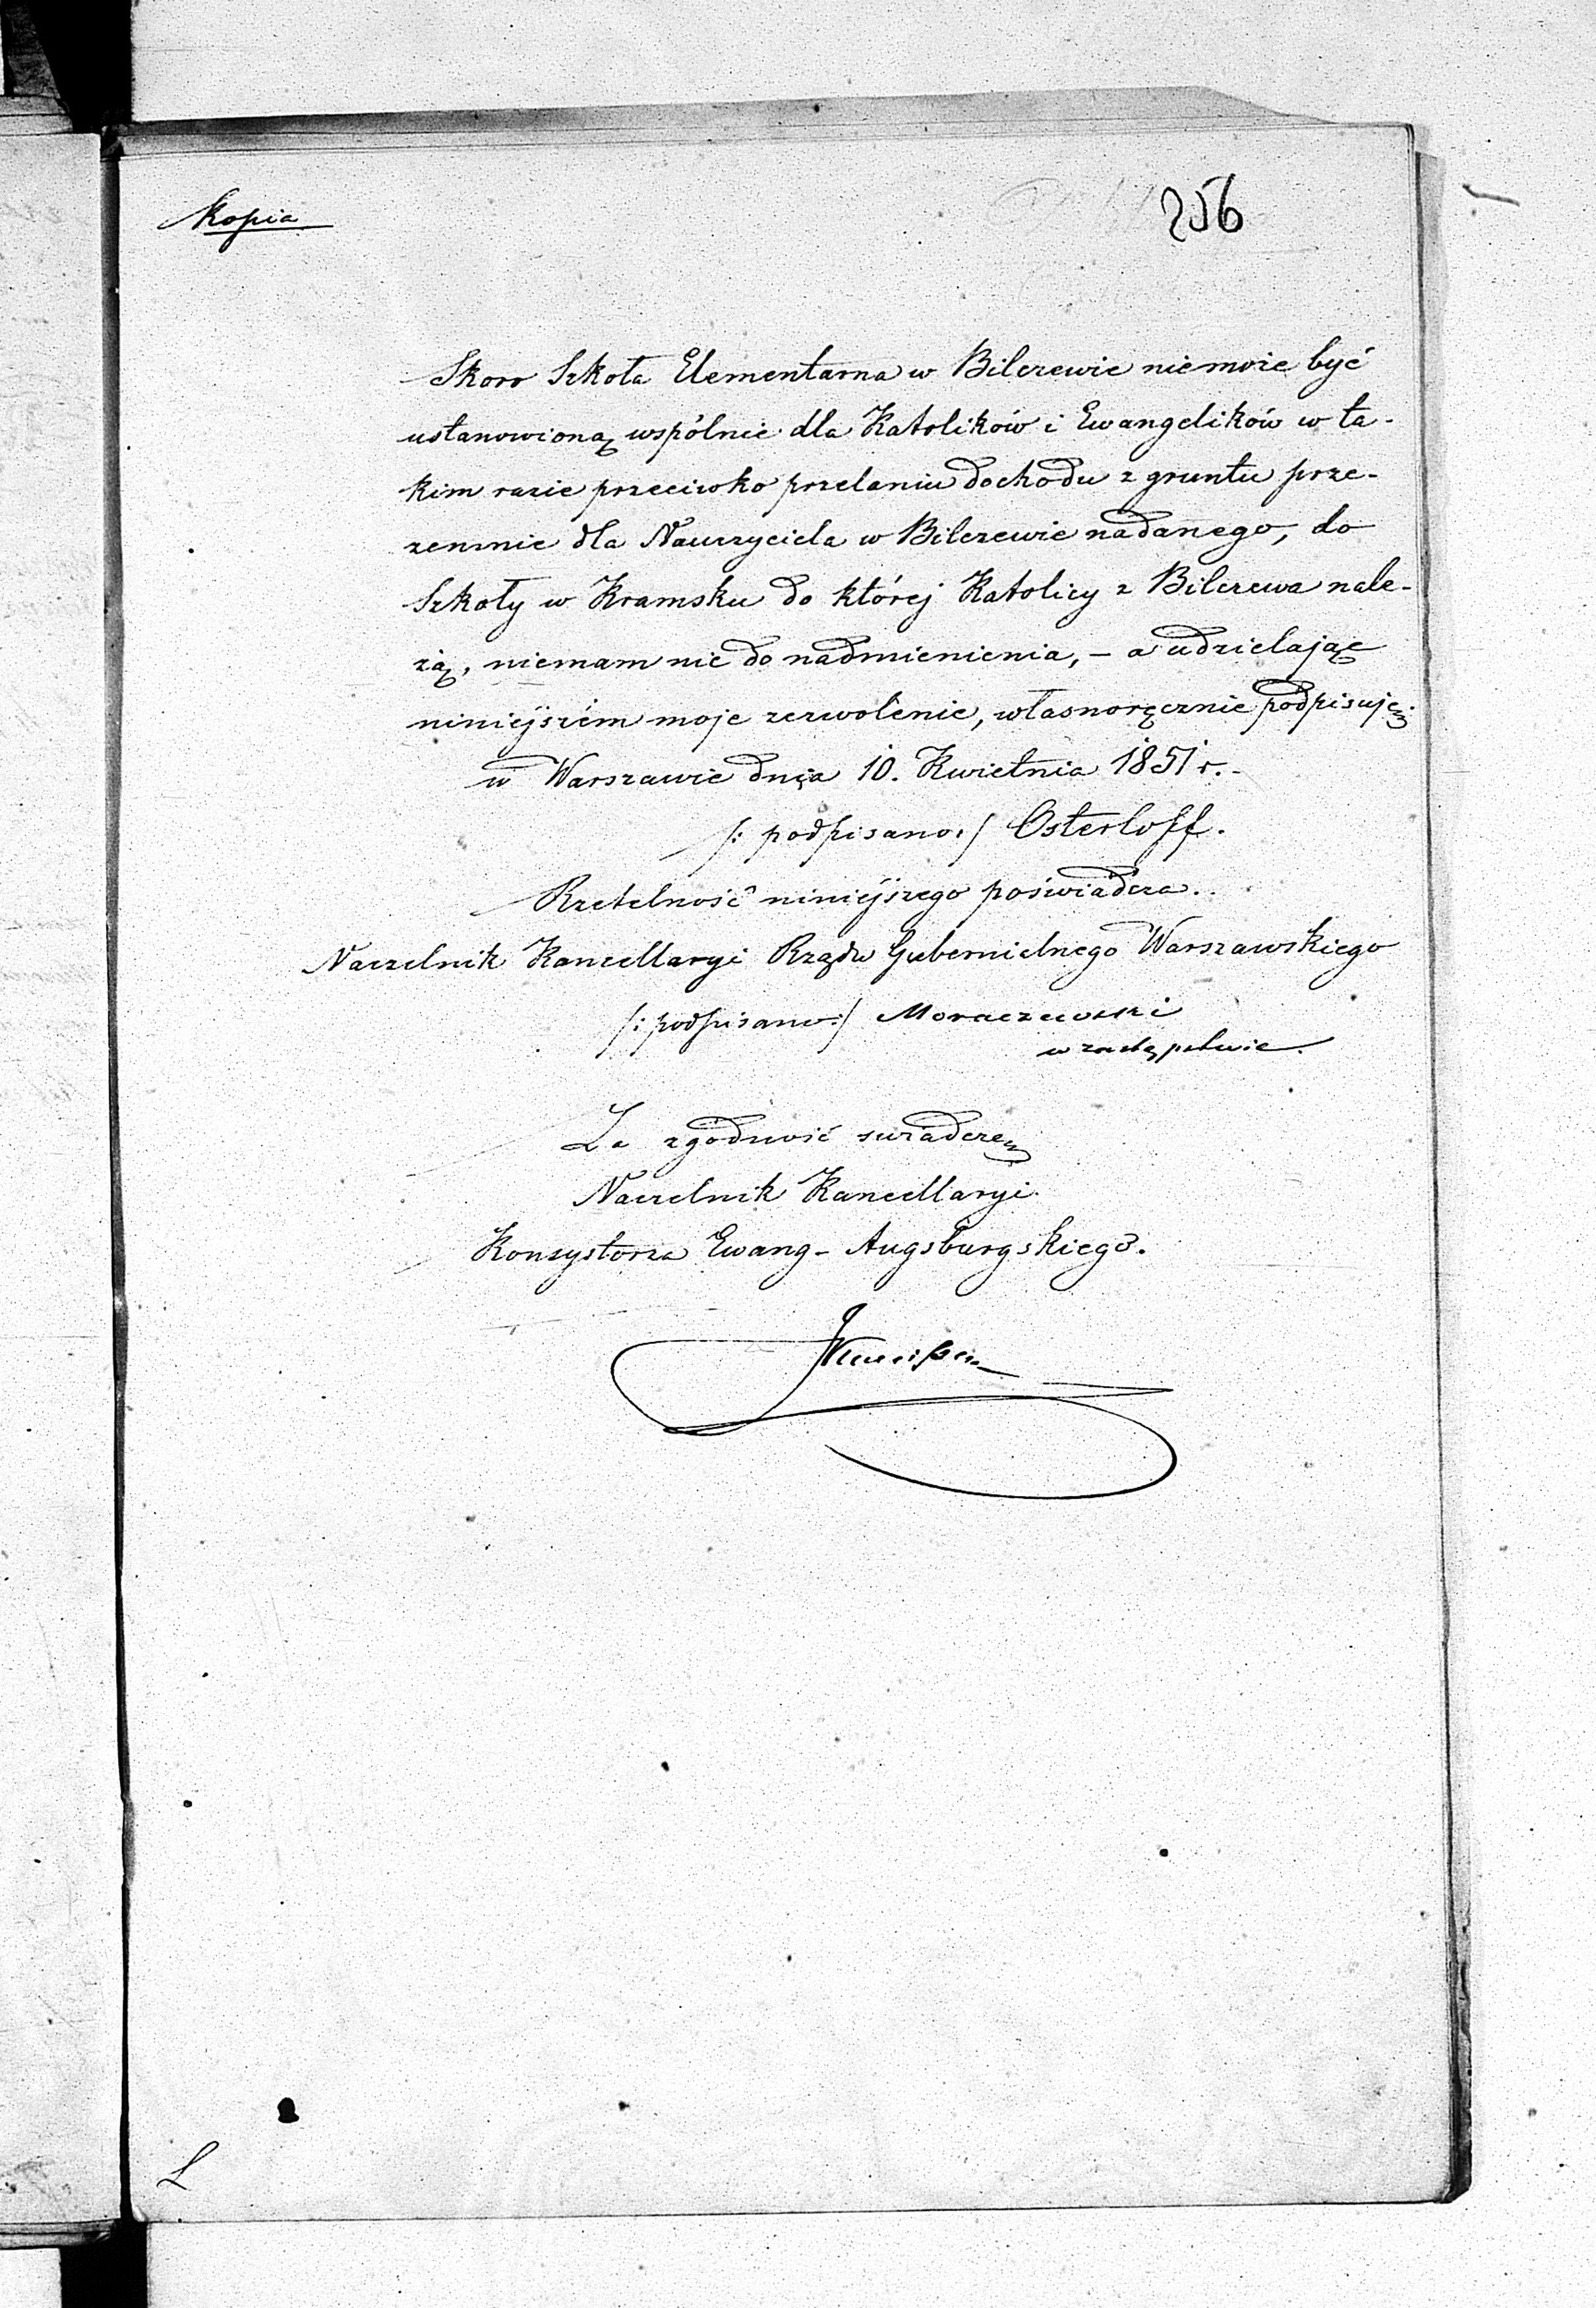 Kopia
256
Skoro Szkoła Elementarna w Bilczewie niemoże być
ustanowioną wspólnie dla Katolików i Ewangelików w ta-
kim razie przeciwko przelaniu dochodu z gruntu prze-
zemnie dla Nauczyciela w Bilczewie nadanego, do
Szkoły w Kramsku do której Katolicy z Bilczewa nale-
żą, niemam nic do nadmienienia, – a udzielając
niniejszém moje zezwolenie, własnoręcznie podpisuję
w Warszawie dnia 10. Kwietnia 1851 r.
/: podpisano :/ Osterloff.
Rzetelność niniejszego poświadcza.
Naczelnik Kancellaryi Rządu Gubernielnego Warszawskiego
/: podpisano :/ Moraczewski
w zastępstwie.
Za zgodność świadczę
Naczelnik Kancellaryi
Konsystorza Ewang- Augsburgskiego.
L